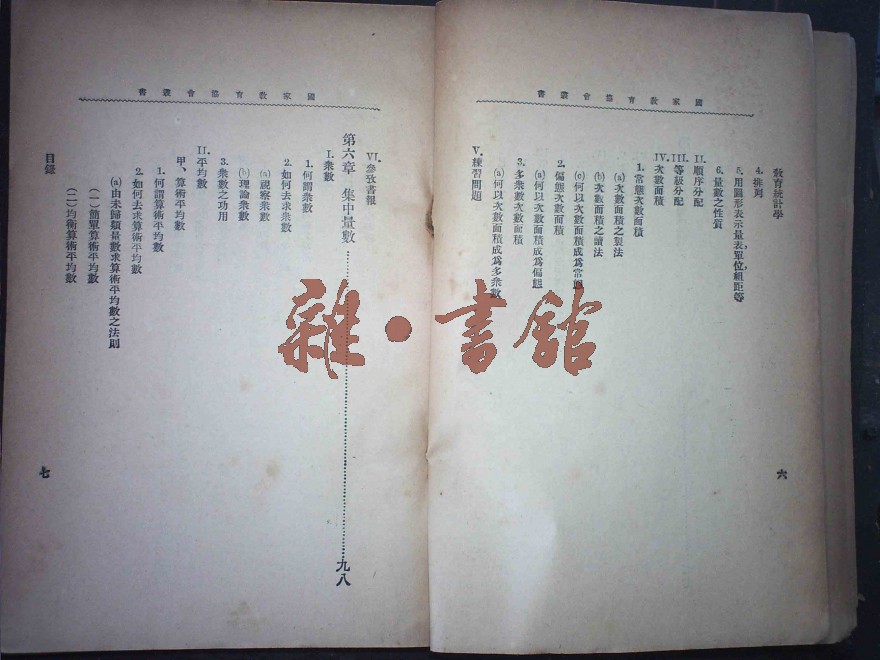 國家教育協會叢書
教育統計學
4. 排列
5. 用圖形表示量表,單位,組距等
6. 量數之性質
II. 順序分配
III. 等級分配
IV. 次數面積
1. 常態次數面積
(a) 次數面積之製法
(b) 次數面積之讀法
(c) 何以次數面積成爲常態
2. 偏態次數面積
(a) 何以次數面積成爲偏態
3. 多衆數次數面積
(a) 何以次數面積成爲多衆數
V. 練習問題
六
國家教育協會叢書
VI. 參攷書報
第六章 集中量數……九八
I. 衆數
1. 何謂衆數
2. 如何去求衆數
(a) 視察衆數
(b) 理論衆數
3. 衆數之功用
II. 平均數
甲、算術平均數
1. 何謂算術平均數
2. 如何去求算術平均數
(a) 由未歸類量數求算術平均數之法則
(一) 簡單算術平均數
(二) 均衡算術平均數
目錄
七
雜·書館